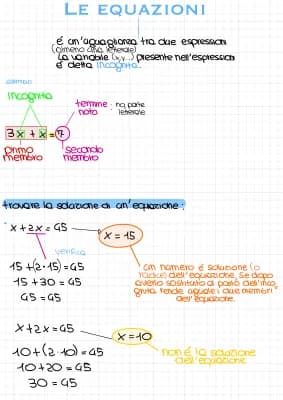 LE EQUAZIONI
é un'uguaglianza tra due espressioni
(almeno una letterale)
La variabile (x,y...) presente nell'espressione
é detta incognita.
esempio
incognita
termine noto : no parte letterale
3x + x = 7
primo membro
secondo membro
trovare la soluzione di un'equazione:
x + 2x = 45
x = 15
verifica
15 + (2 · 15) = 45
15 + 30 = 45
45 = 45
un numero é soluzione (o
radice) dell'equazione se dopo
averlo sostituito al posto dell'inco
gnita rende uguale i due membri
dell'equazione.
x + 2x = 45
x = 10
10 + (2 · 10) = 45
10 + 20 = 45
30 = 45
non é la soluzione
dell'equazione